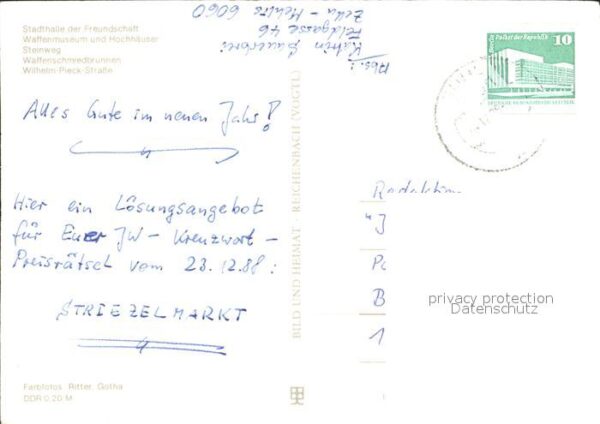 Stadthalle der Freundschaft
Waffenmuseum und Hochhäuser
Steinweg
Waffenschmiedbrunnen
Wilhelm-Pieck-Straße
Abs.: Katrin Sauerbrei
Feldgasse 46
Zella-Mehlis 6060
Berlin Palast der Republik 10
Alles Gute im neuen Jahr!
Hier ein Lösungsangebot
für Euer JW-Kreuzwort-
Preisrätsel vom 23.12.88:
STRIEZELMARKT
BILD UND HEIMAT REICHENBACH (VOGTL)
Redaktion
"J
B
1
privacy protection
Datenschutz
Farbfotos: Ritter, Gotha
DDR 0,20 M